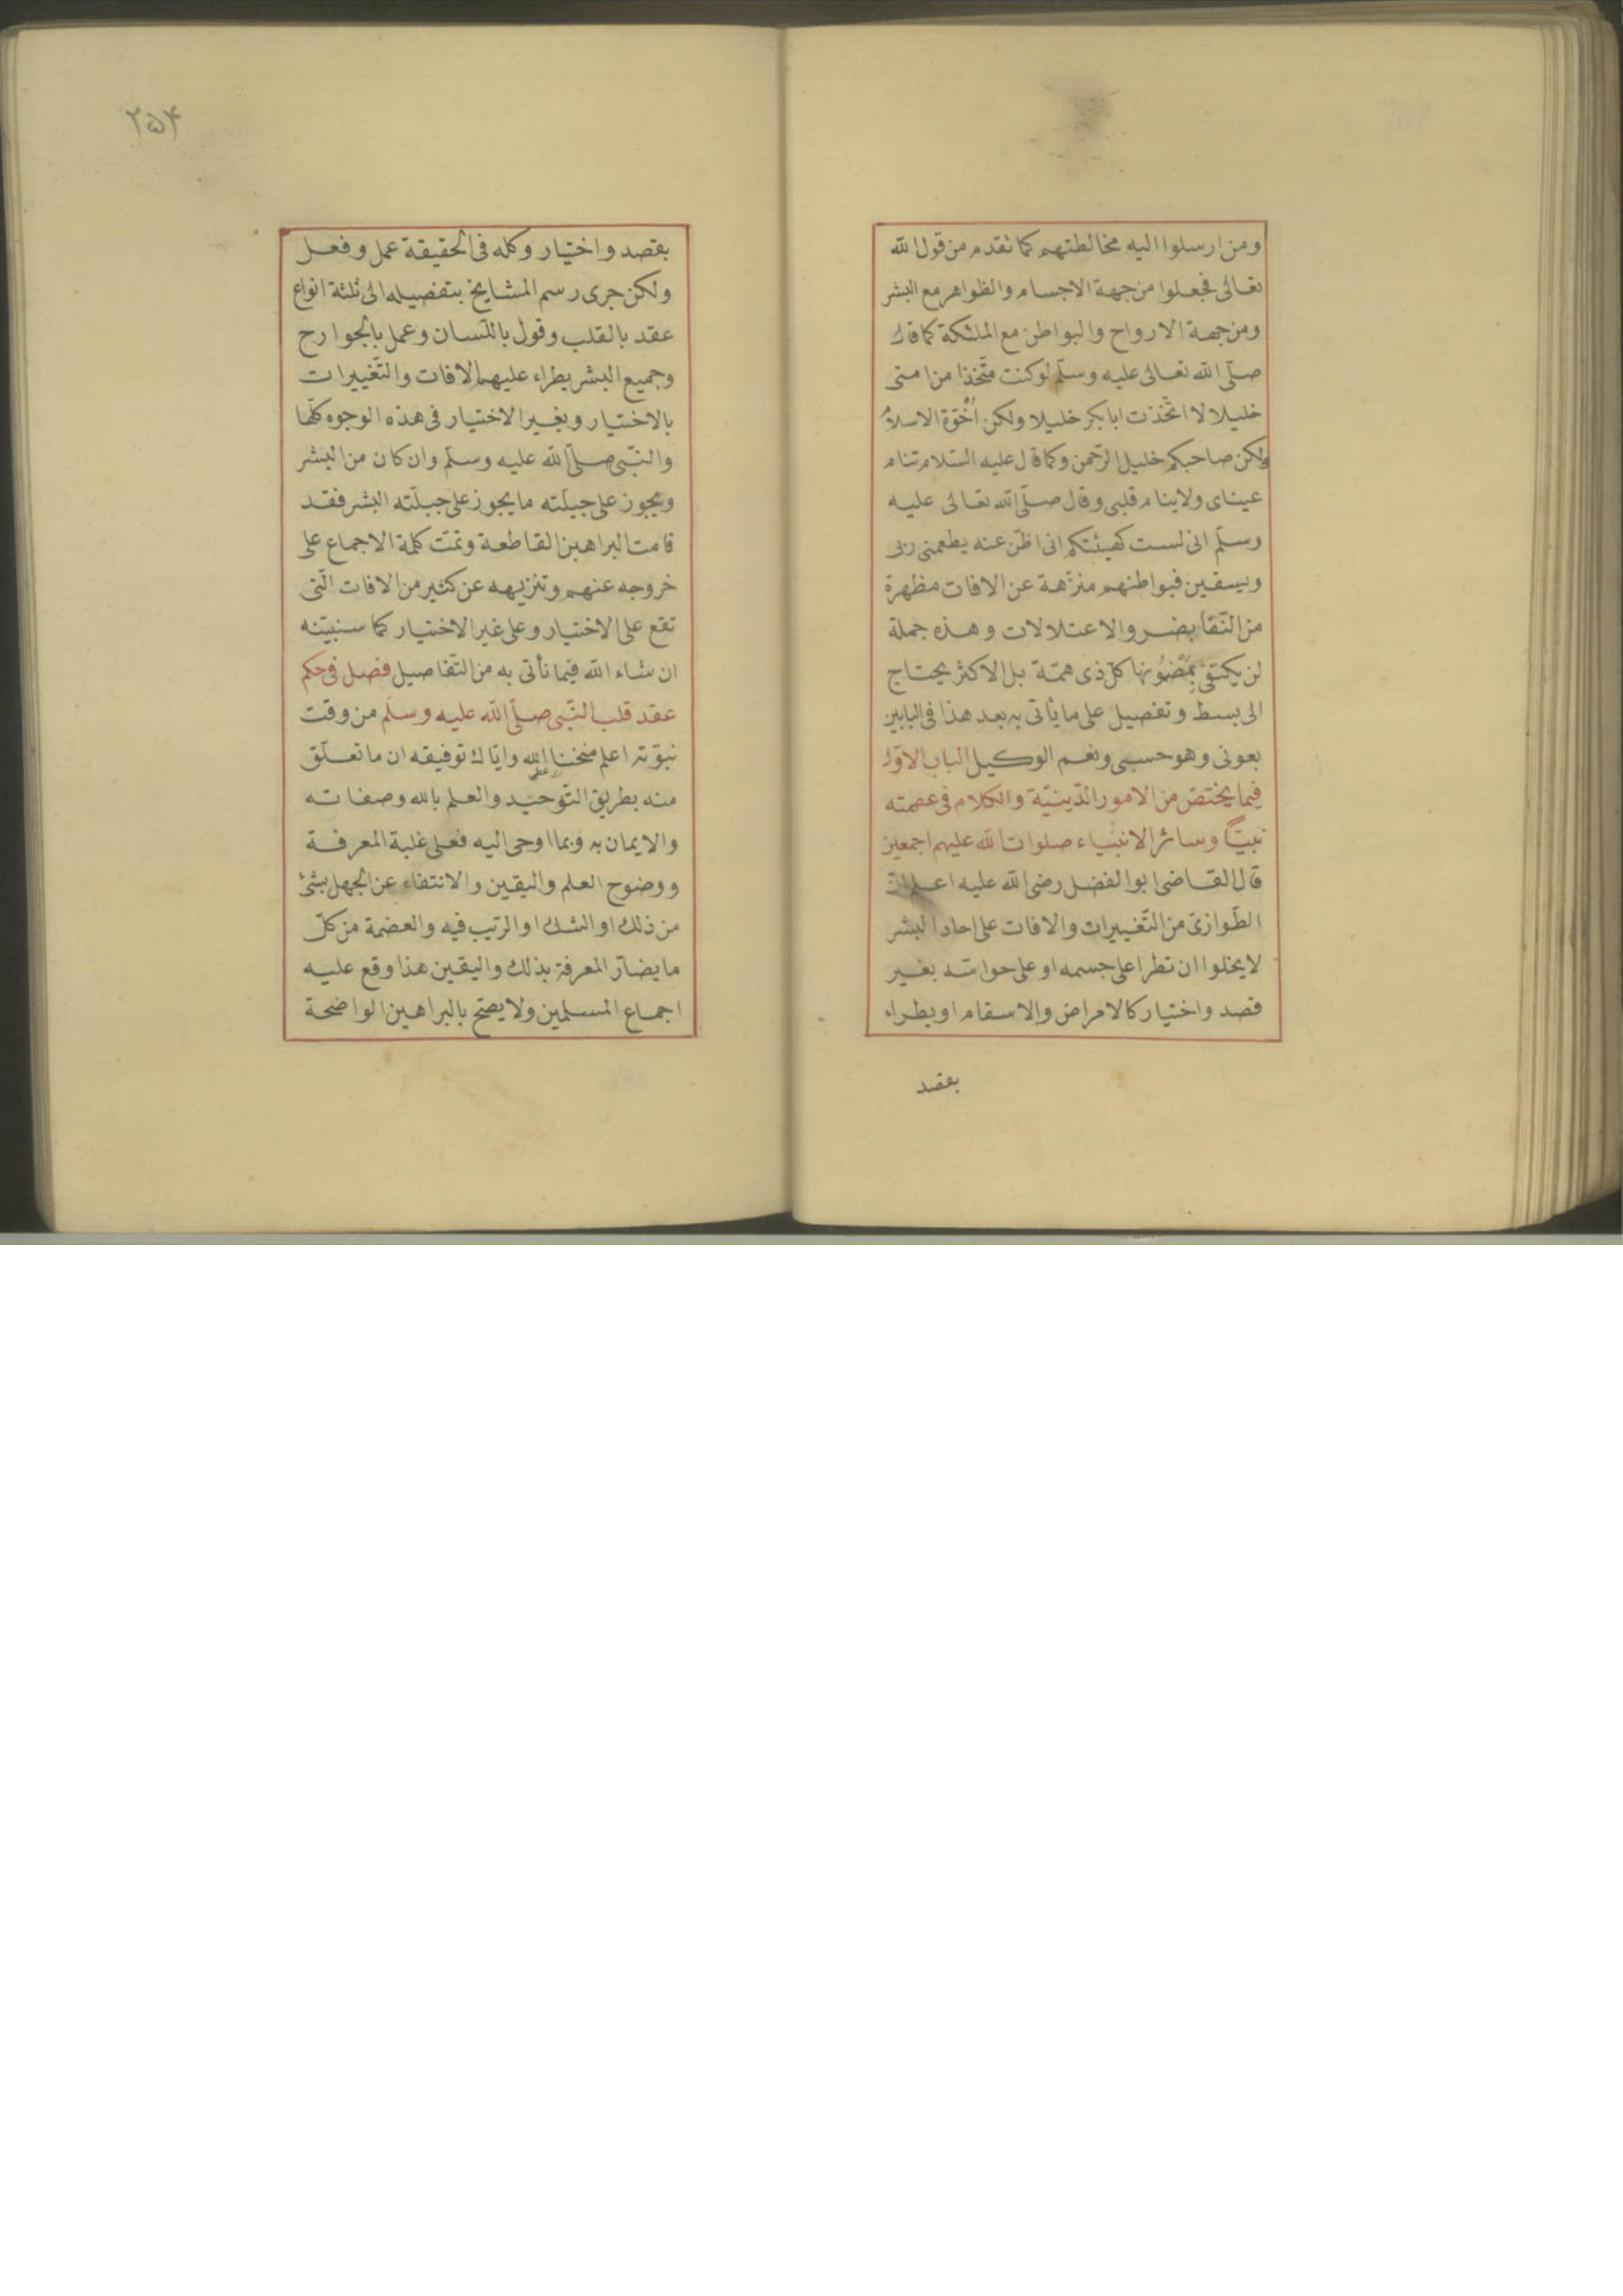 ومن ارسلوا اليه مخالطتهم كما تقدم من قول الله
تعالى فجعلوا من جهة الاجسام والظواهر مع البشر
ومن جهة الارواح والبواطن مع الملئكة كما قال
صلّى الله تعالى عليه وسلّم لو كنت متّخذا من امتى
خليلا لا اتّخذت ابا بكر خليلا ولكن اُخْوّة الاسلام
ولكن صاحبكم خليل الرّحمن وكما قال عليه السّلام تنام
عيناى ولا ينام قلبى وقال صلّى الله تعالى عليه
وسلّم انى لست كهيئتكم انى اظلّ عنه يطعمنى ربى
ويسقين فبواطنهم منزّهة عن الافات مظهرة
من النّقايض والاعتلالات وهذه جملة
لن يكتفى بمَضْمُونها كلّ ذى همّة بل الاكثر يحتاج
الى بسط وتفصيل على ما يأتى به بعد هذا فى البابين
بعونى وهو حسبى ونعم الوكيل الباب الاوّل
فيما يختصّ من الامور الدّينيّة والكلام فى عصمته
نبيّاً وسائر الانبياء صلوات الله عليهم اجمعين
قال القاضى ابو الفضل رضى الله عليه اعلم انّ
الطّوازى من التّغييرات والافات على احاد البشر
لا يخلوا ان تطرا على جسمه او على حواسّه بغير
قصد واختيار كالامراض والاسقام او يطراء
بقصد
٢٥۴
بقصد واختيار وكله فى الحقيقة عمل وفعل
ولكن جرى رسم المشايخ بتفصيله الى ثلثة انواع
عقد بالقلب وقول باللّسان وعمل بالجوارح
وجميع البشر يطراء عليهم الافات والتّغييرات
بالاختيار وبغير الاختيار فى هذه الوجوه كلّها
والنّبى صلّى الله عليه وسلّم وان كان من البشر
ويجوز على جبلّته ما يجوز على جبلّته البشر فقد
قامت البراهين القاطعة وتمّت كلمة الاجماع على
خروجه عنهم وتنزيهه عن كثير من الافات الّتى
تقع على الاختيار وعلى غير الاختيار كما سنبيّنه
ان شاء الله فيما نأتى به من التّفاصيل فصل فى حكم
عقد قلب النّبى صلّى الله عليه وسلّم من وقت
نبوّته اعلم منحنا الله وايّاك توفيقه ان ما تعلّق
منه بطريق التّوحيد والعلم بالله وصفاته
والايمان به وبما اوحى اليه فعلى غلبة المعرفة
ووضوح العلم واليقين والانتفاء عن الجهل بشئ
من ذلك او الشك او الرّيب فيه والعصمة من كلّ
ما يضادّ المعرفة بذلك واليقين هذا وقع عليه
اجماع المسلمين ولا يصحّ بالبراهين الواضحة